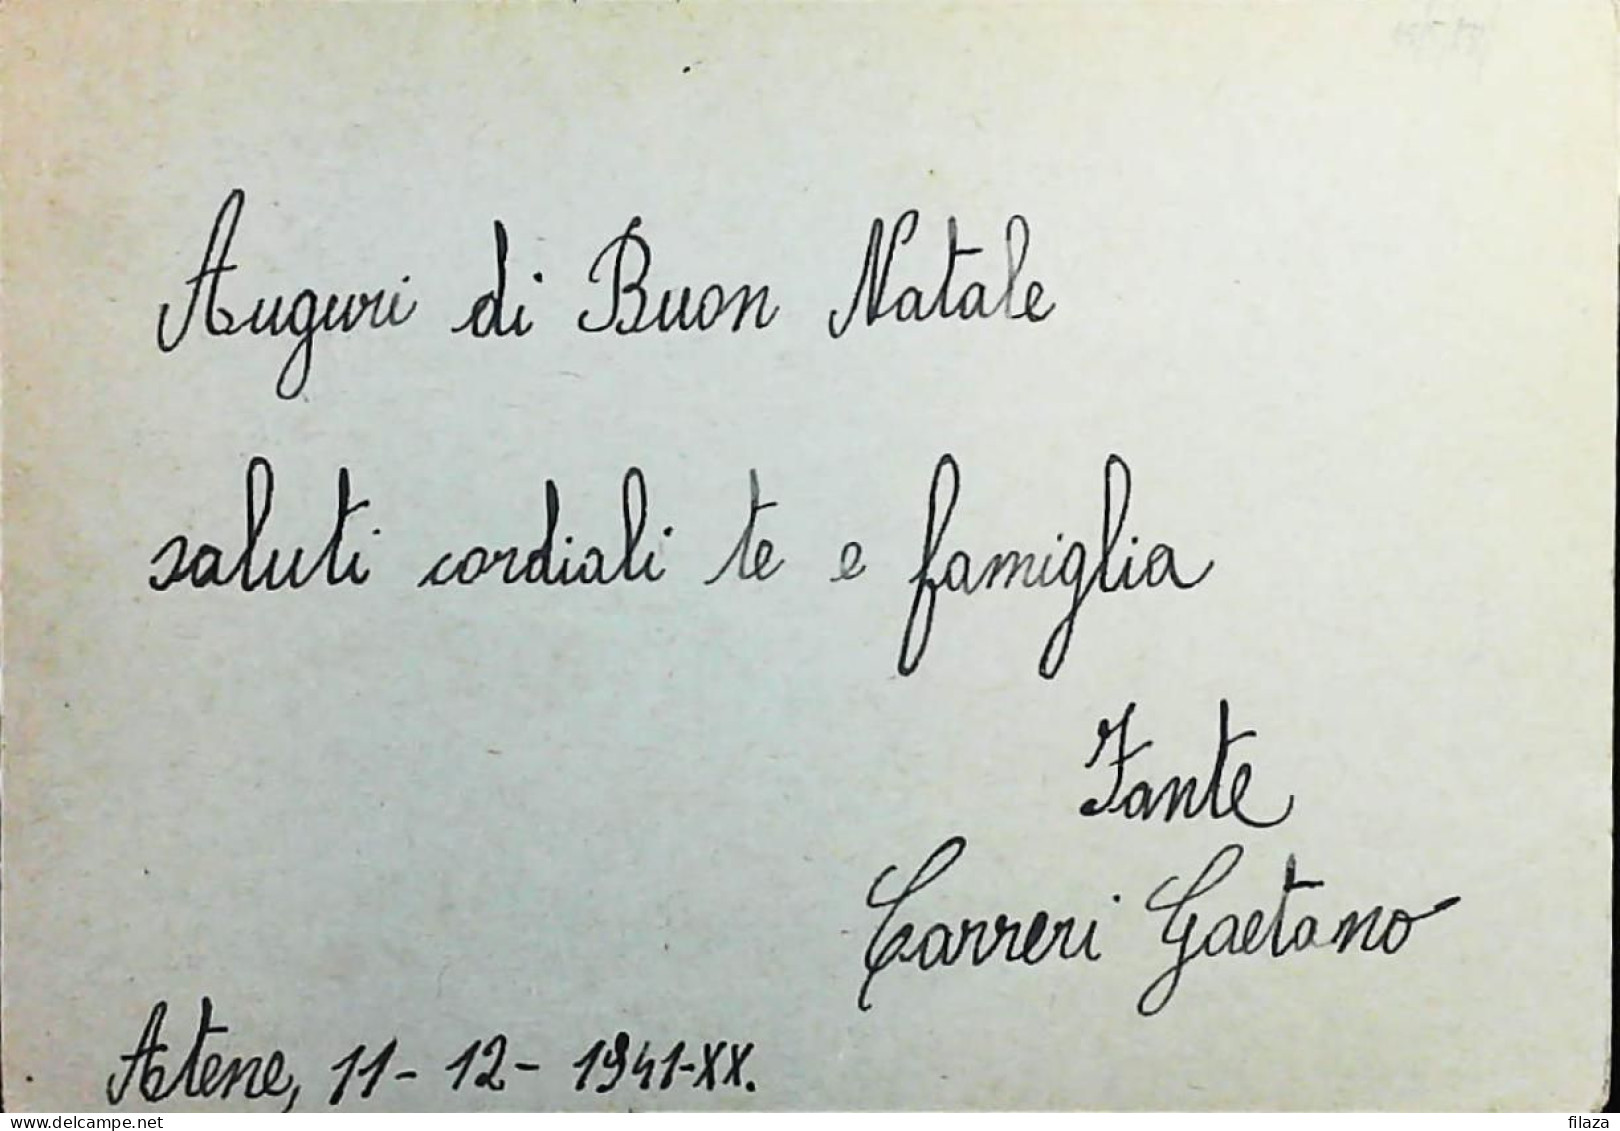 Auguri di Buon Natale
saluti cordiali te e famiglia
Fante
Carreri Gaetano
Atene, 11-12-1941-XX.
delcampe.net
filaza